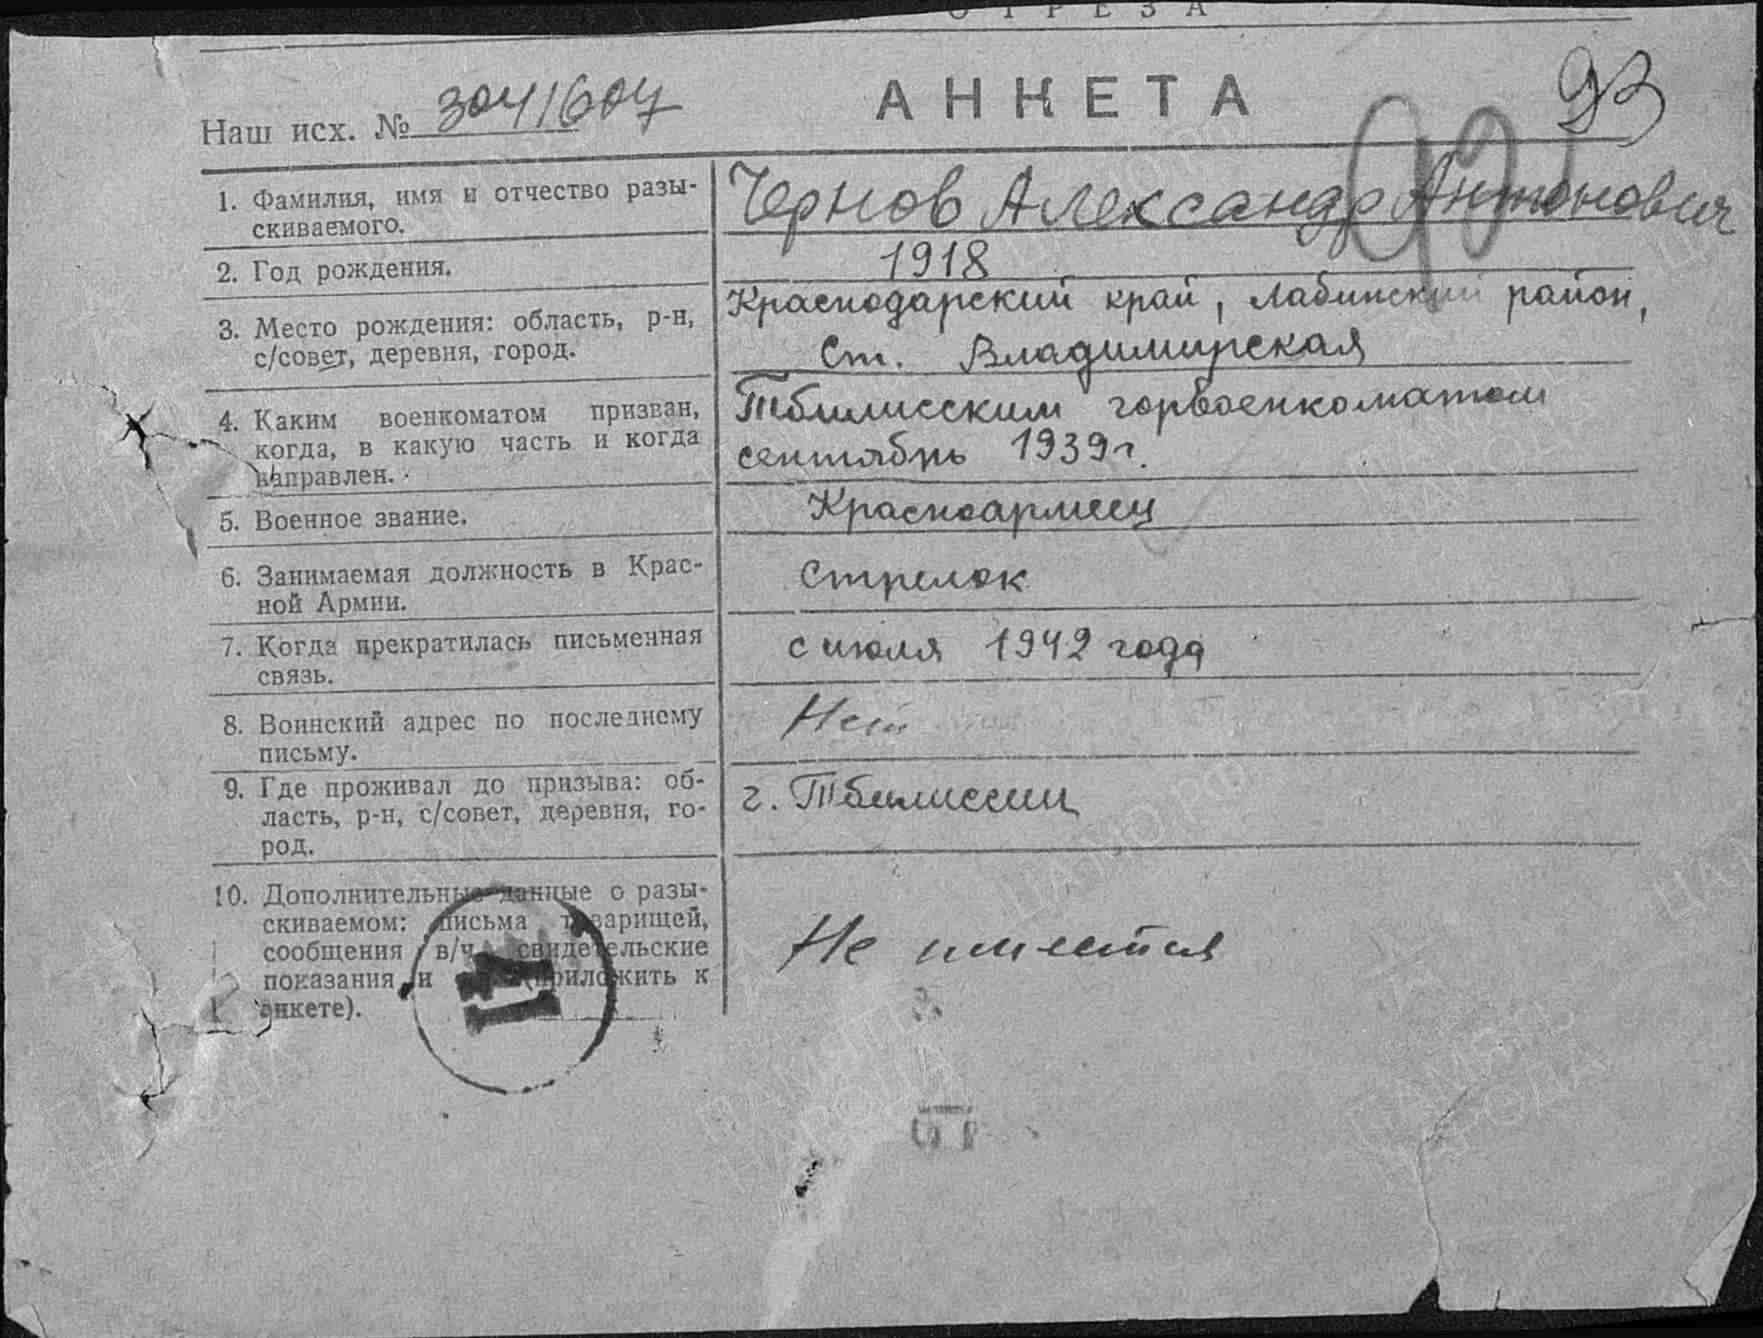 ОТРЕЗА
АНКЕТА
93
Наш исх. № 3041607
92
1. Фамилия, имя и отчество разы-
скиваемого.
Чернов Александр Антонович
2. Год рождения.
1918
3. Место рождения: область, р-н,
с/совет, деревня, город.
Краснодарский край, Лабинский район,
ст. Владимирская
4. Каким военкоматом призван,
когда, в какую часть и когда
направлен.
Тбилисским горвоенкоматом
сентябрь 1939 г.
5. Военное звание.
Красноармеец
6. Занимаемая должность в Крас-
ной Армии.
Стрелок
7. Когда прекратилась письменная
связь.
с июля 1942 года
8. Воинский адрес по последнему
письму.
Нет
9. Где проживал до призыва: об-
ласть, р-н, с/совет, деревня, го-
род.
г. Тбилиссии
10. Дополнительные данные о разы-
скиваемом: письма товарищей,
сообщения в/ч, свидетельские
показания и (приложить к
анкете).
Не имеется